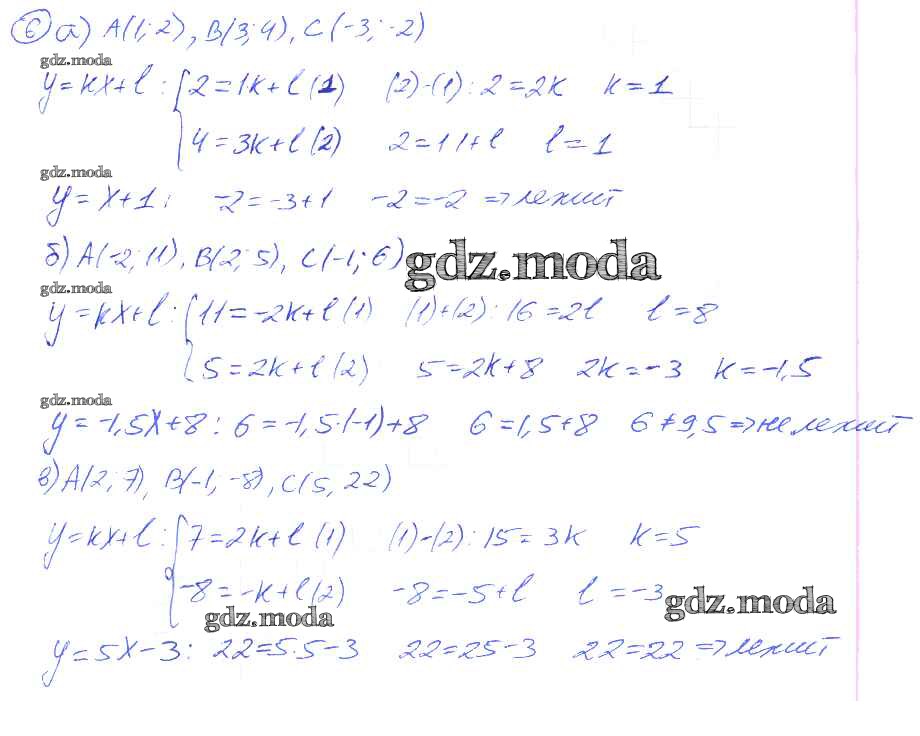 6 а) A(1; 2), B(3; 4), C(-3; -2)
gdz.moda
y=kx+l : { 2=1k+l (1) (2)-(1): 2=2k k=1
4=3k+l (2) 2=1+l l=1
gdz.moda
y=x+1: -2=-3+1 -2=-2 => лежит
б) A(-2; 11), B(2; 5), C(-1; 6)
gdz.moda
gdz.moda
y=kx+l : { 11=-2k+l (1) (1)+(2): 16=2l l=8
5=2k+l (2) 5=2k+8 2k=-3 k=-1,5
gdz.moda
y=-1,5x+8 : 6=-1,5·(-1)+8 6=1,5+8 6≠9,5 => не лежит
в) A(2; 7), B(-1; -8), C(5, 22)
y=kx+l : { 7=2k+l (1) (1)-(2): 15=3k k=5
-8=-k+l (2) -8=-5+l l=-3
gdz.moda
gdz.moda
y=5x-3: 22=5·5-3 22=25-3 22=22 => лежит